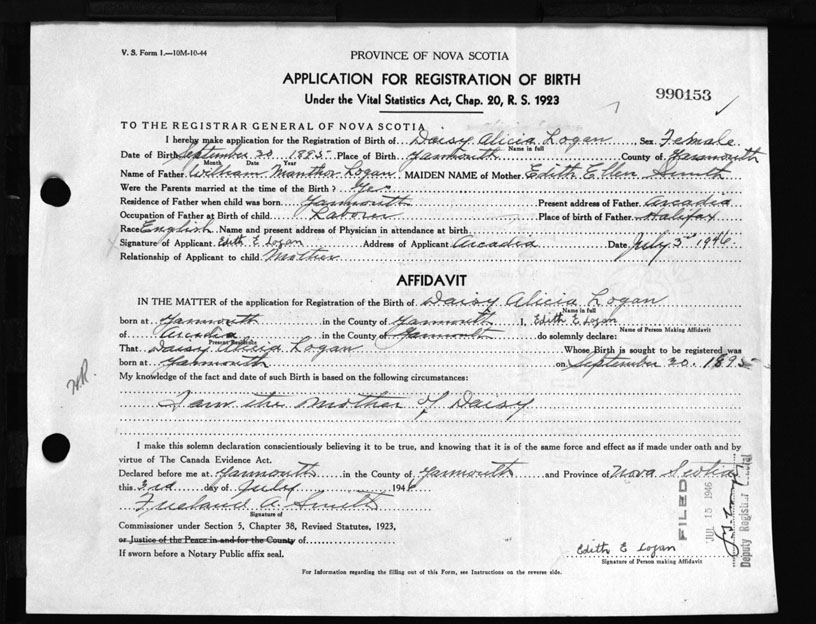 V. S. Form 1.—10M-10-44
PROVINCE OF NOVA SCOTIA
APPLICATION FOR REGISTRATION OF BIRTH
Under the Vital Statistics Act, Chap. 20, R. S. 1923
990153
TO THE REGISTRAR GENERAL OF NOVA SCOTIA
I hereby make application for the Registration of Birth of Daisy Alicia Logan Sex Female
Name in full
Date of Birth September 20 1895 Place of Birth Yarmouth County of Yarmouth
Month Date Year
Name of Father William Logan MAIDEN NAME of Mother Edith Ellen Smith
Were the Parents married at the time of the Birth? Yes
Residence of Father when child was born Yarmouth Present address of Father Arcadia
Occupation of Father at Birth of child Laborer Place of birth of Father Halifax
Race English Name and present address of Physician in attendance at birth
Signature of Applicant Edith E Logan Address of Applicant Arcadia Date July 3rd 1946
Relationship of Applicant to child Mother
AFFIDAVIT
IN THE MATTER of the application for Registration of the Birth of Daisy Alicia Logan
Name in full
born at Yarmouth in the County of Yarmouth I, Edith E Logan
Name of Person Making Affidavit
of Arcadia in the County of Yarmouth do solemnly declare:
Present Residence
That Daisy Alicia Logan Whose Birth is sought to be registered was
born at Yarmouth on September 20. 1895
My knowledge of the fact and date of such Birth is based on the following circumstances:
I am the mother of Daisy
I make this solemn declaration conscientiously believing it to be true, and knowing that it is of the same force and effect as if made under oath and by
virtue of The Canada Evidence Act.
Declared before me at Yarmouth in the County of Yarmouth and Province of Nova Scotia
this 3rd day of July 1946
Freeland A Smith
Signature of
Commissioner under Section 5, Chapter 38, Revised Statutes, 1923,
or Justice of the Peace in and for the County of
If sworn before a Notary Public affix seal.
FILED
JUL 15 1946
Deputy Registrar General
Edith E Logan
Signature of Person making Affidavit
For Information regarding the filling out of this Form, see Instructions on the reverse side.